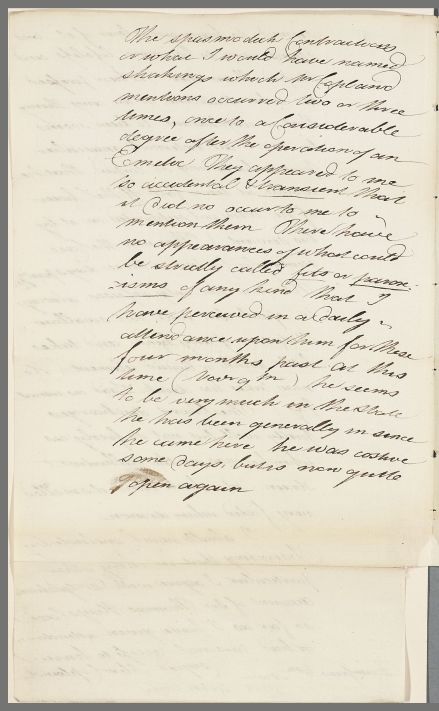 The spasmodick Contractions
or what I would have named
shakings which Mr Copland
mentions occurred two or three
times, once to a Considerable
degree after the operation of an
Emetic They appeared to me
so accidental & transient that
it did no occur to me to
mention them There have
no appearances of what could
be strictly called fits or parox-
-isms of any kind that I
have perceived in a daily
attendance upon him for these
four months past at this
time (                ) he seems
to be very much in the state
he has been generally in since
he came here he was costive
some days. but is now quite
open again